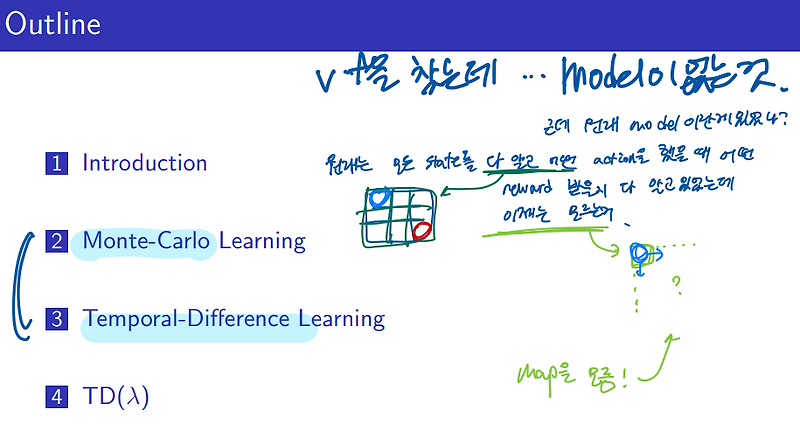 Outline
v f을 찾는데 ... Model이 없는 것.
근데 원래 model 이란게 있었나?
1 Introduction
원래는 모든 state를 다 알고 어떤 action을 했을 때 어떤
reward 받을지 다 알고 있었는데
이제는 모르는거.
2 Monte-Carlo Learning
?
3 Temporal-Difference Learning
Map을 모름!
4 TD(λ)